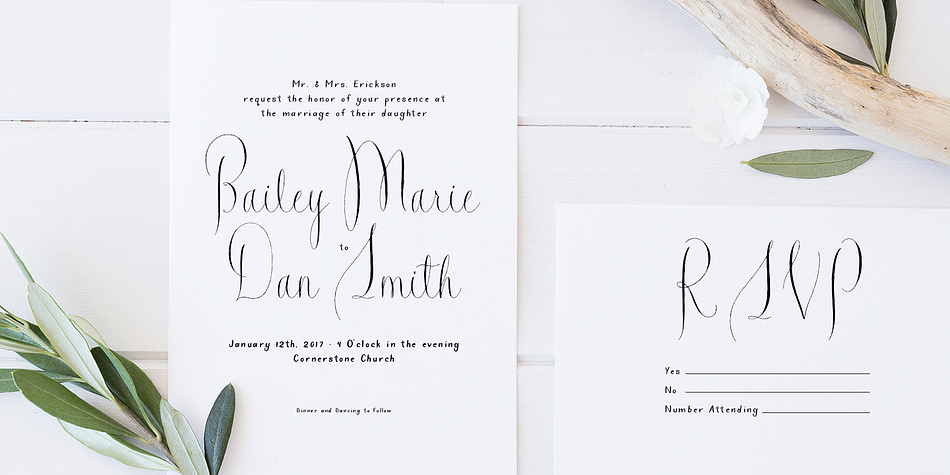 Mr. & Mrs. Erickson
request the honor of your presence at
the marriage of their daughter
Bailey Marie
to
Dan Smith
January 12th, 2017 · 4 O'clock in the evening
Cornerstone Church
Dinner and Dancing to Follow
RSVP
Yes
No
Number Attending